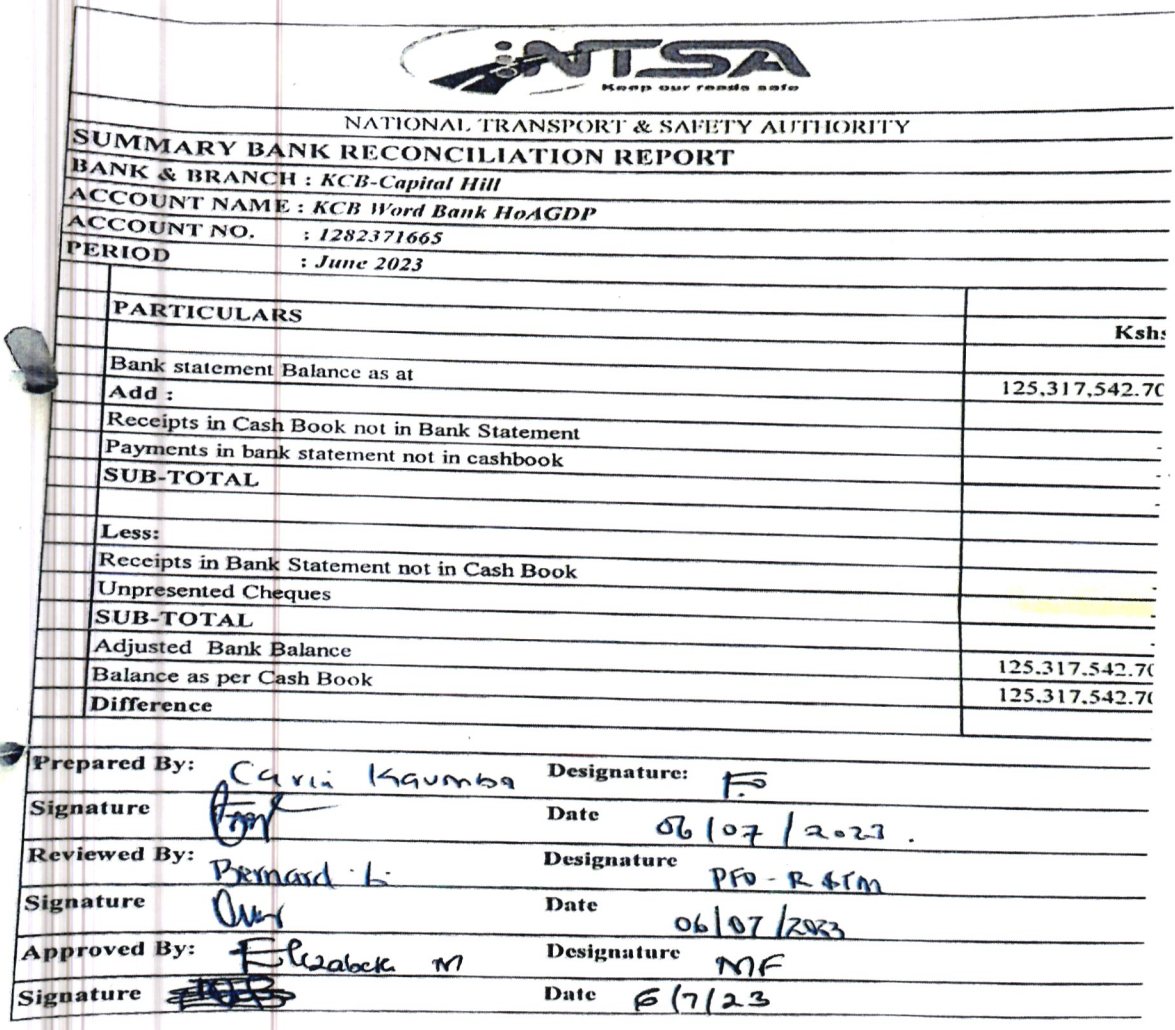 NTSA
Keep our roads safe
NATIONAL TRANSPORT & SAFETY AUTHORITY
SUMMARY BANK RECONCILIATION REPORT
BANK & BRANCH : KCB-Capital Hill
ACCOUNT NAME : KCB Word Bank HoAGDP
ACCOUNT NO. : 1282371665
PERIOD : June 2023
PARTICULARS Kshs
Bank statement Balance as at 125,317,542.70
Add :
Receipts in Cash Book not in Bank Statement -
Payments in bank statement not in cashbook -
SUB-TOTAL -
Less:
Receipts in Bank Statement not in Cash Book -
Unpresented Cheques -
SUB-TOTAL -
Adjusted Bank Balance 125,317,542.70
Balance as per Cash Book 125,317,542.70
Difference
Prepared By: Kaumba Designature:
Signature Date 06/07/2023.
Reviewed By: Bernard L. Designature PFO-R
Signature Date 06/07/2023
Approved By: Elizabeth M Designature MF
Signature Date 6/7/23